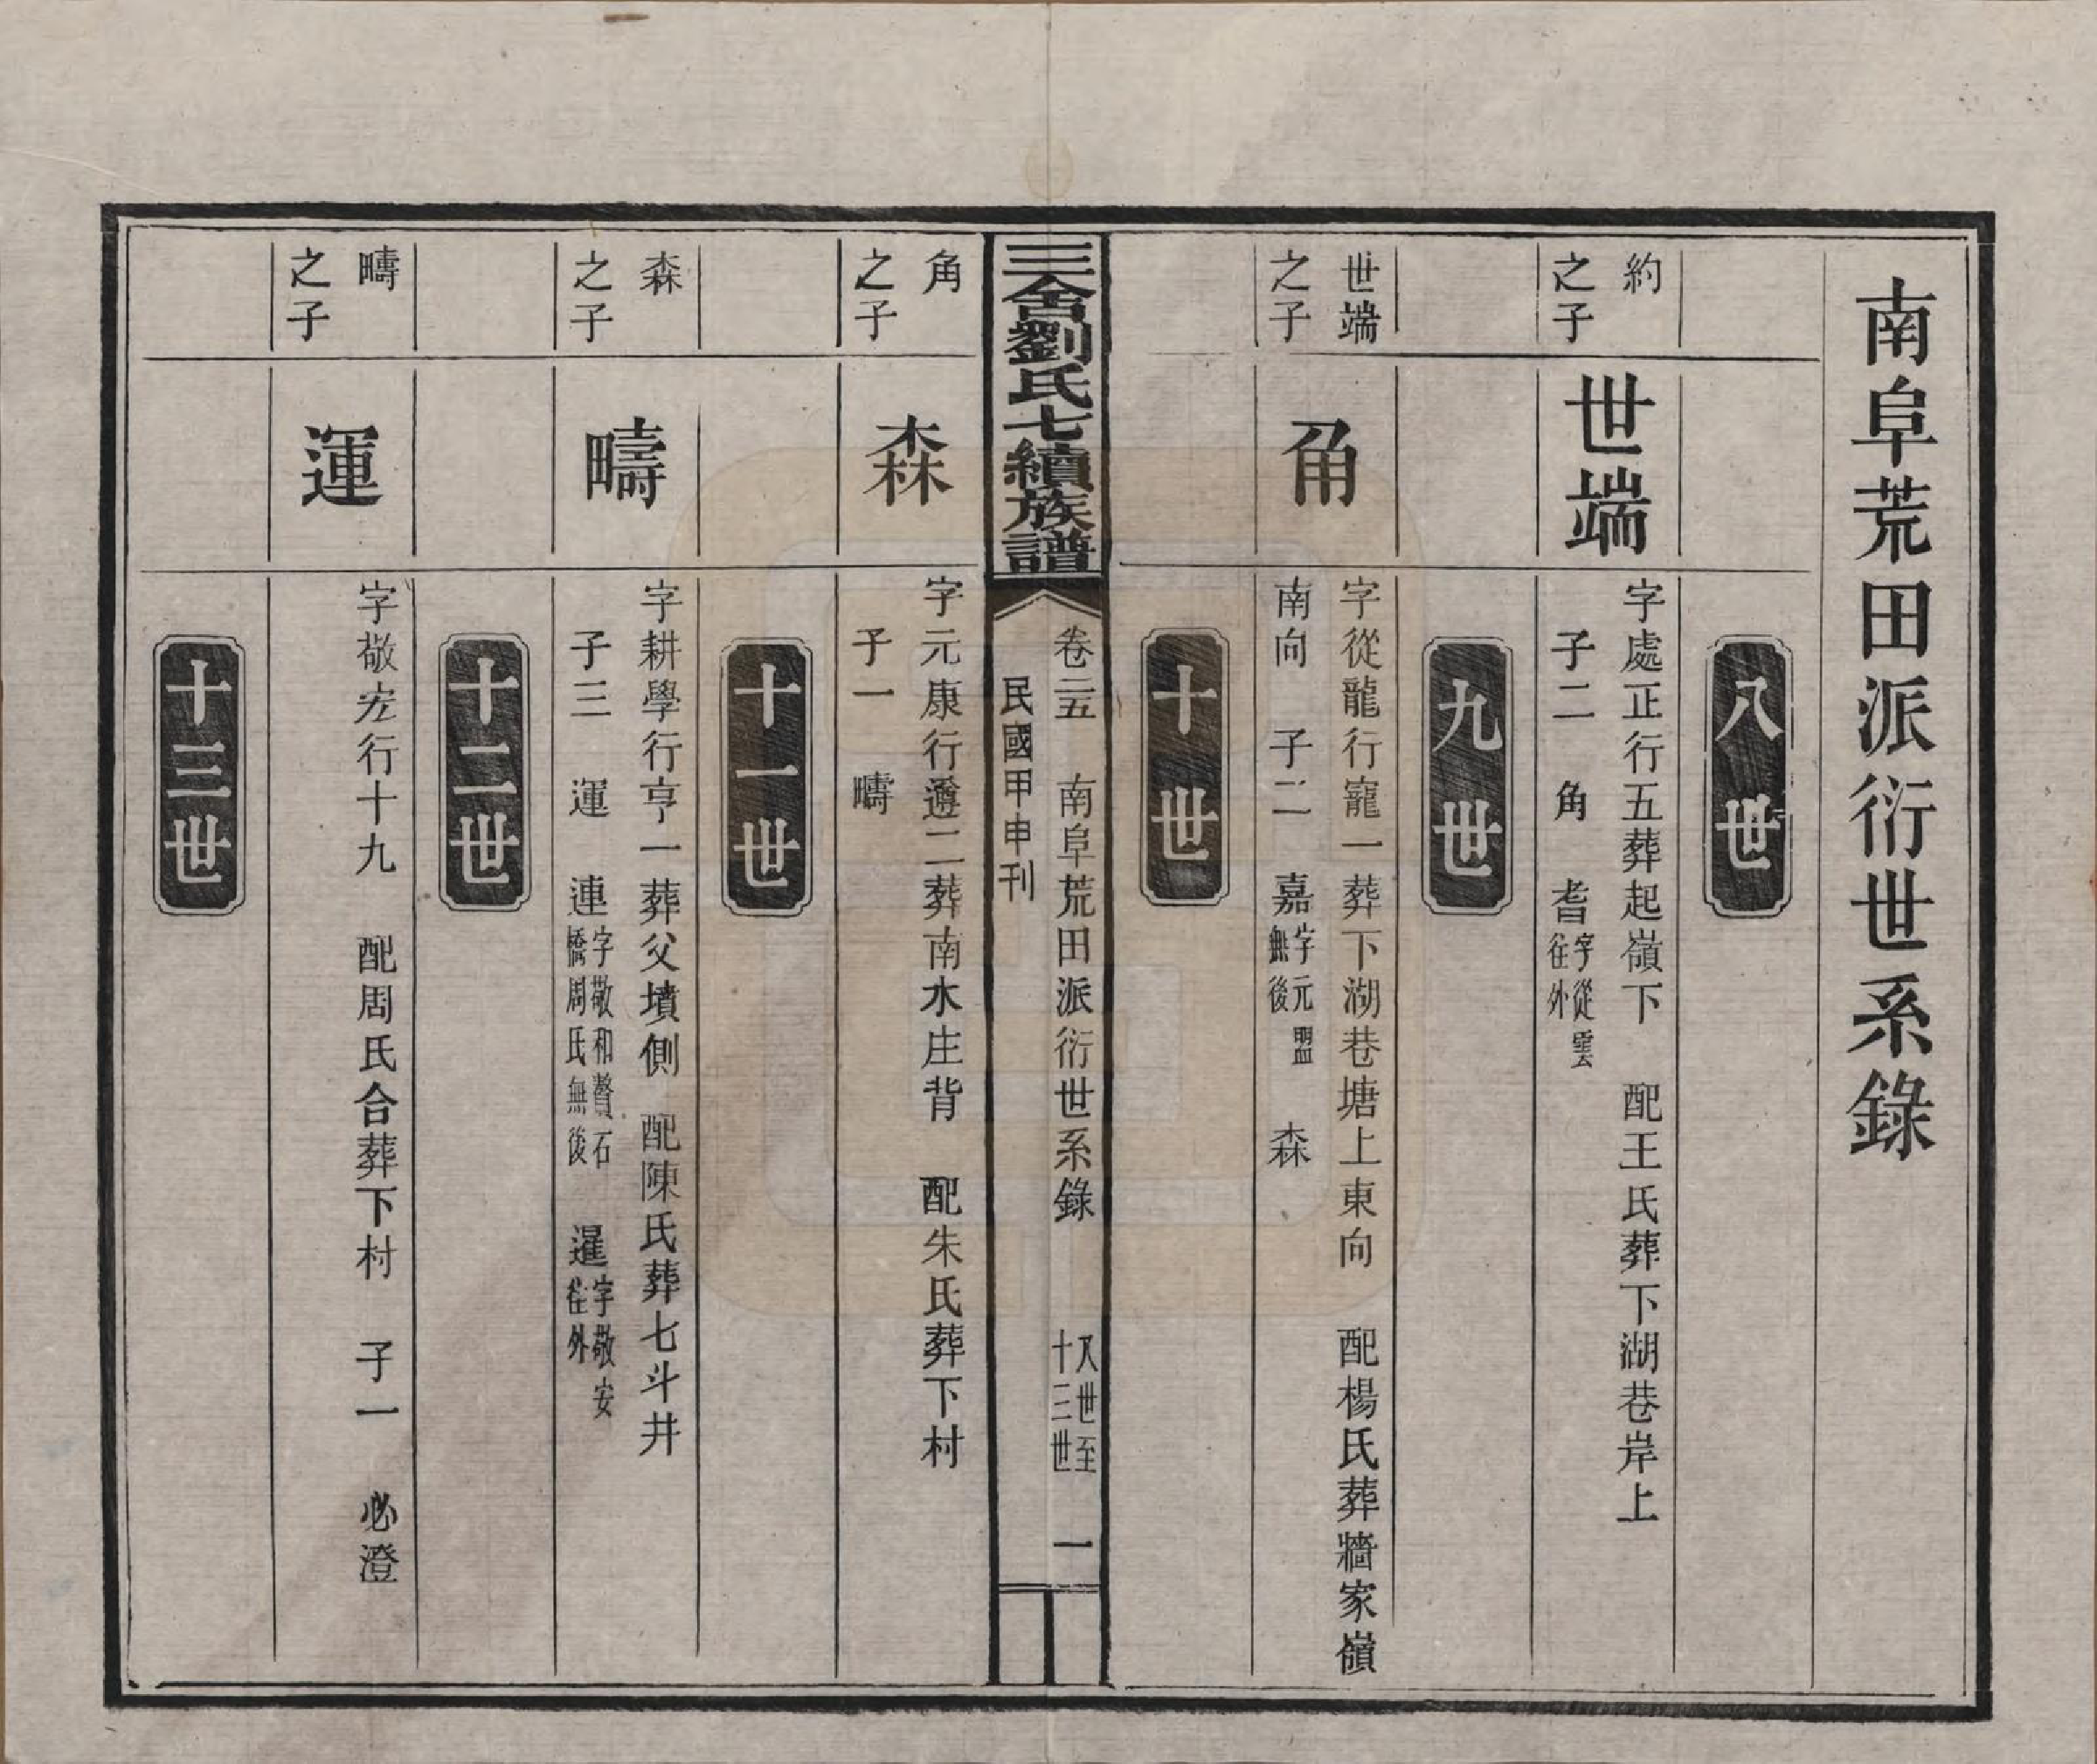 南阜荒田派衍世系錄
八世
約之子
世端
字處正行五葬起嶺下　配王氏葬下湖巷岸上
子二　角　耆字從雲往外
九世
世端之子
角
字從龍行寵一葬下湖巷塘上東向　配楊氏葬牆家嶺
南向　子二　嘉字元盟無後　森
十世
三舍劉氏七續族譜
卷二五　南阜荒田派衍世系錄　八世至十三世　一
民國甲申刊
角之子
森
字元康行遵二葬南水庄背　配朱氏葬下村
子一　疇
十一世
森之子
疇
字耕學行亨一葬父墳側　配陳氏葬七斗井
子三　運　連字敬和贅石橋周氏無後　暹字敬安往外
十二世
疇之子
運
字敬宏行十九　配周氏合葬下村　子一　必澄
十三世